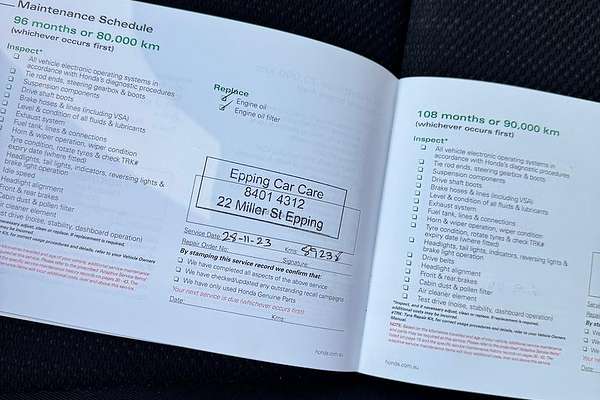 Maintenance Schedule
96 months or 80,000 km
(whichever occurs first)
Inspect*
All vehicle electronic operating systems in
accordance with Honda's diagnostic procedures
Tie rod ends, steering gearbox & boots
Suspension components
Drive shaft boots
Brake hoses & lines (including VSA)
Level & condition of all fluids & lubricants
Exhaust system
Fuel tank, lines & connections
Horn & wiper operation, wiper condition
Tyre condition, rotate tyres & check TRK#
expiry date (where fitted)
Headlights, tail lights, indicators, reversing lights &
brake light operation
Idle speed
Headlight alignment
Front & rear brakes
Cabin dust & pollen filter
Air cleaner element
Test drive (noise, stability, dashboard operation)
Replace
Engine oil
Engine oil filter
Epping Car Care
8401 4312
22 Miller St Epping
Service Date 28-11-23 Kms 89238
Repair Order No. Signature
By stamping this service record we confirm that:
We have completed all aspects of the above service
We have checked/updated any outstanding recall campaigns
We have only used Honda Genuine Parts
Your next service is due (whichever occurs first)
Date Kms
honda.com.au
108 months or 90,000 km
(whichever occurs first)
Inspect*
All vehicle electronic operating systems in
accordance with Honda's diagnostic procedures
Tie rod ends, steering gearbox & boots
Suspension components
Drive shaft boots
Brake hoses & lines (including VSA)
Level & condition of all fluids & lubricants
Exhaust system
Fuel tank, lines & connections
Horn & wiper operation, wiper condition
Tyre condition, rotate tyres & check TRK#
expiry date (where fitted)
Headlights, tail lights, indicators, reversing lights &
brake light operation
Drive belts
Headlight alignment
Front & rear brakes
Cabin dust & pollen filter
Air cleaner element
Test drive (noise, stability, dashboard operation)
honda.com.au